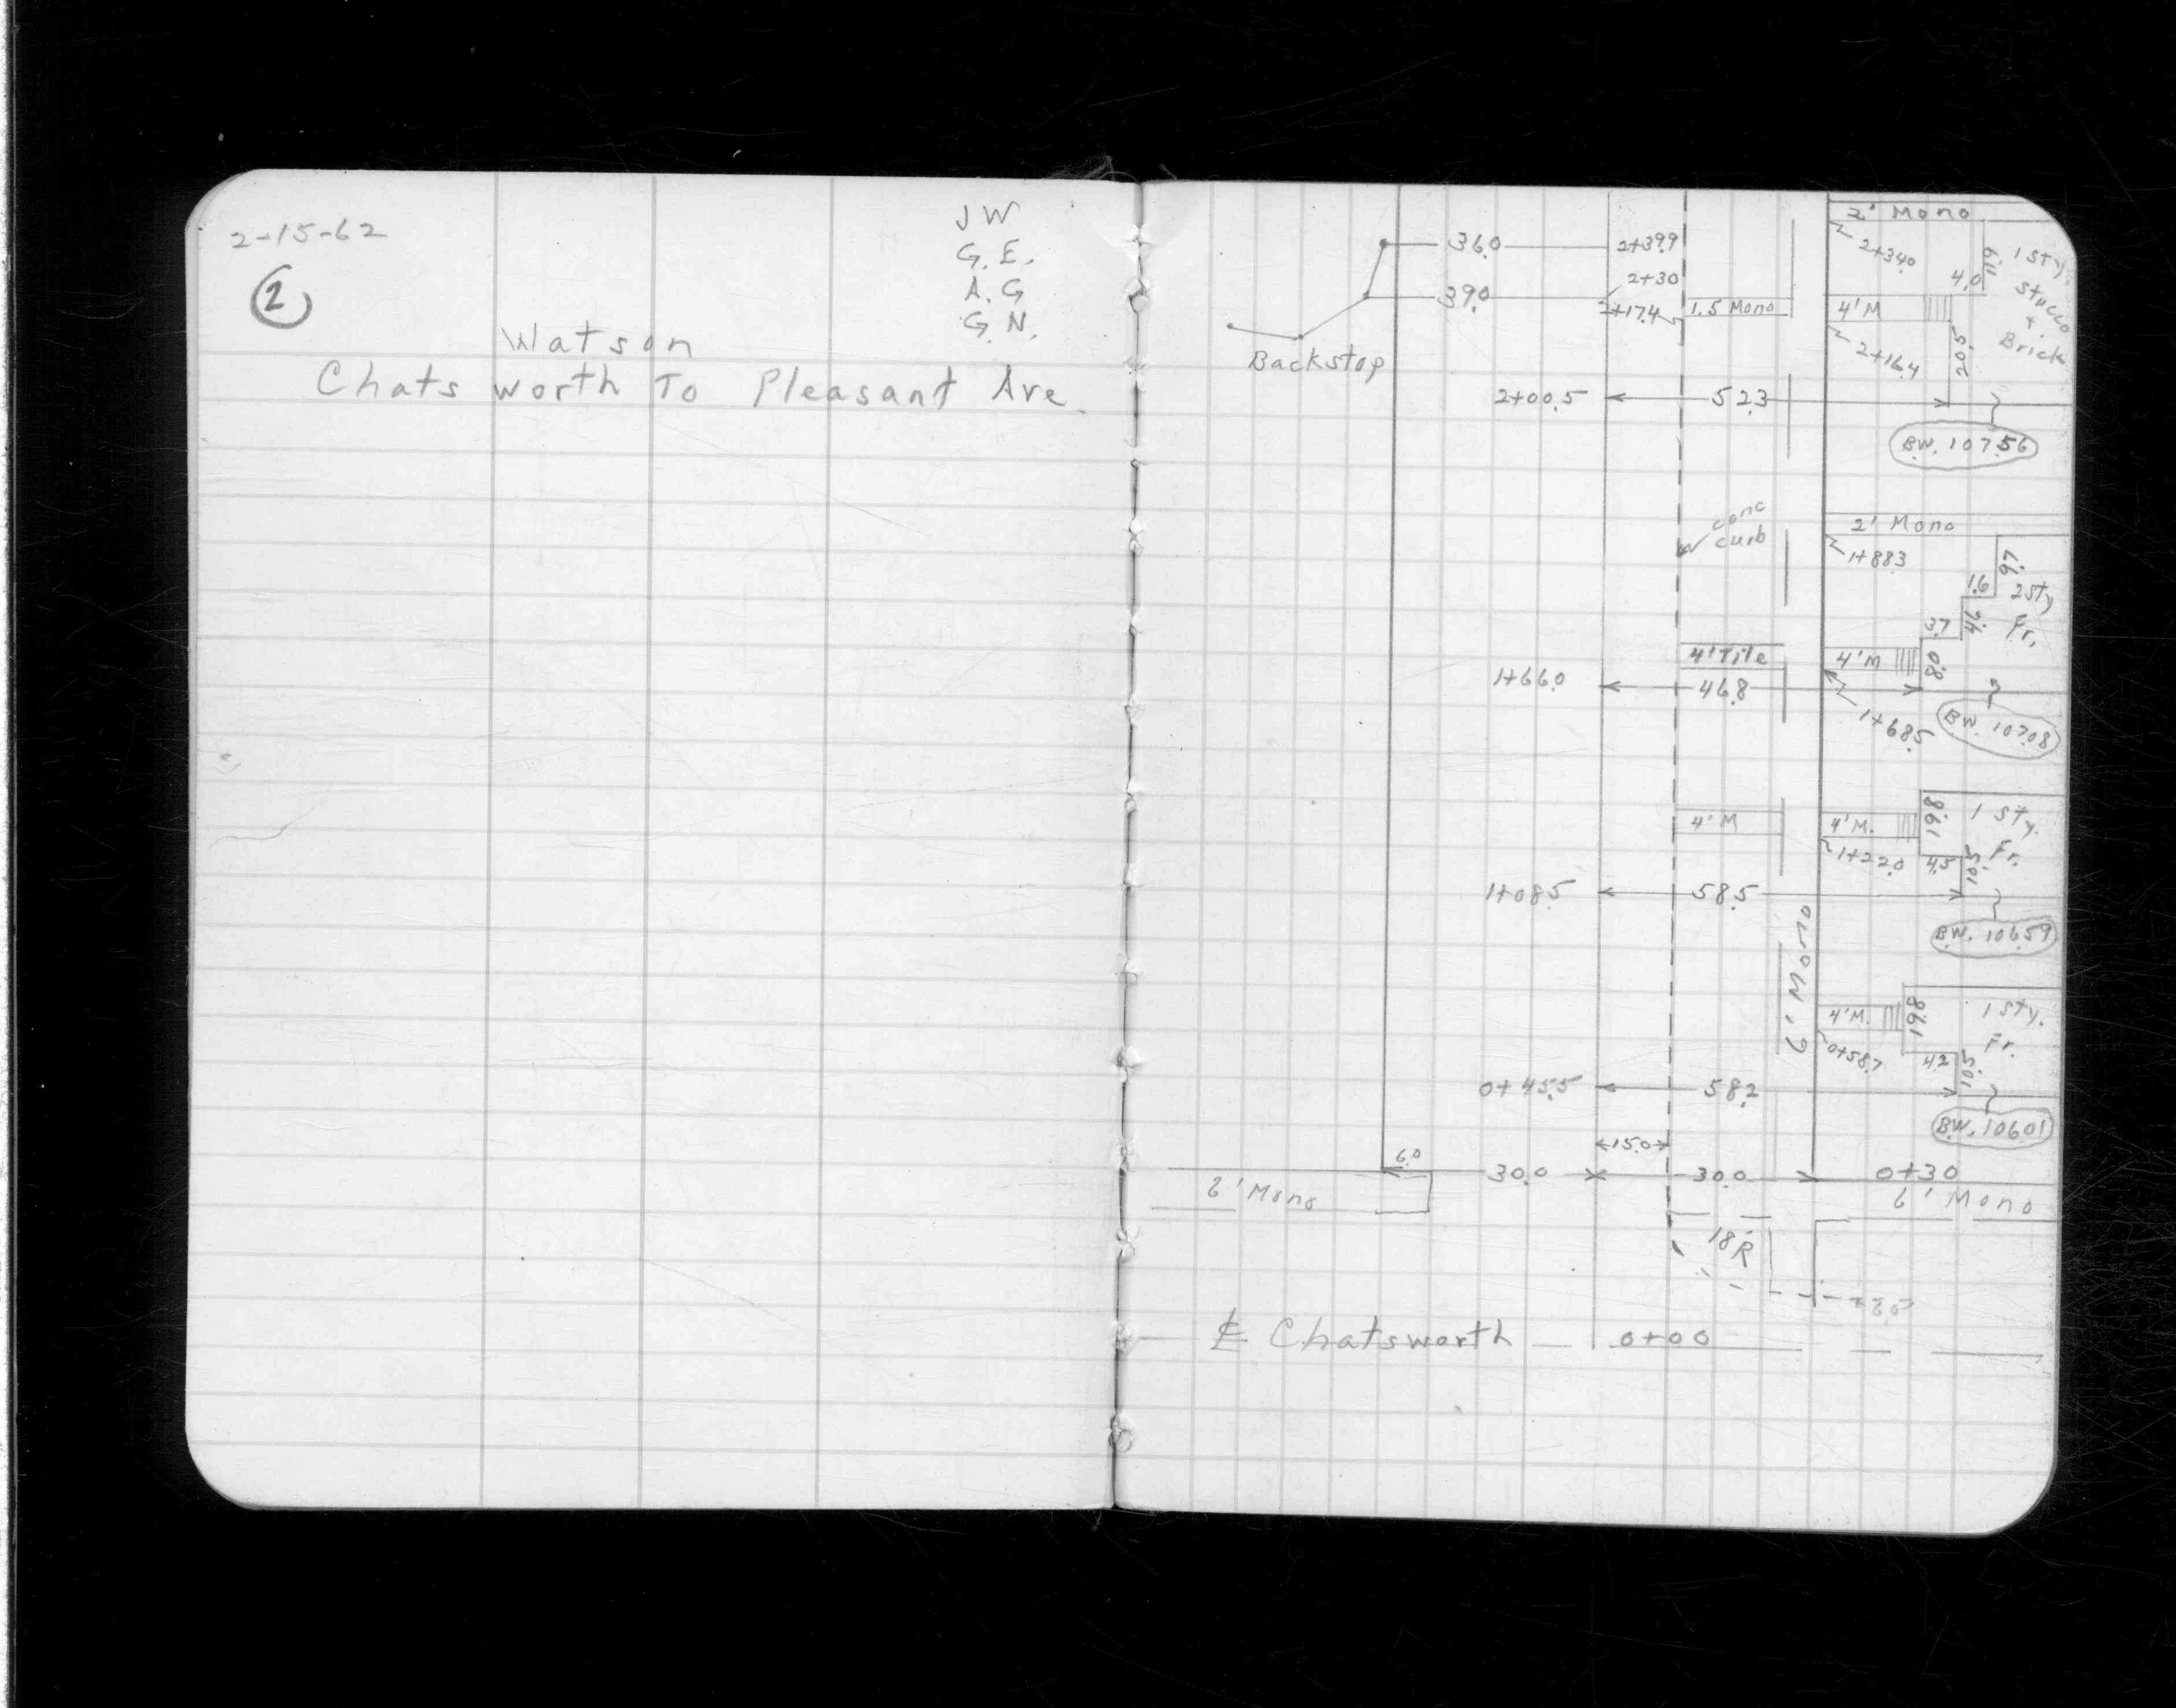 2-15-62
JW
G. E.
A. G
G. N.
2
Watson
Chatsworth To Pleasant Ave.
2' Mono
36.0
2+39.9
2+34.0
11.9
1 Sty.
Stucco
+
Brick
39.0
2+30
2+17.4
1.5 Mono
4.0
4'M
2+16.4
20.5
Backstop
2+00.5
52.3
B.W. 107.56
conc
curb
2' Mono
1+88.3
9.7
1.6
2 Sty
Fr.
4.6
3.7
4' Tile
4'M
8.0
1+66.0
46.8
1+68.5
B.W. 107.08
4'M
4'M.
19.8
1 Sty.
Fr.
1+22.0
4.5
10.5
1+08.5
58.5
B.W. 106.59
6' Mono
4'M.
19.8
1 Sty.
Fr.
0+58.7
4.2
10.5
0+45.5
58.2
B.W. 106.01
15.0
6.0
30.0
30.0
0+30
6' Mono
6' Mono
18'R
℄ Chatsworth
0+00